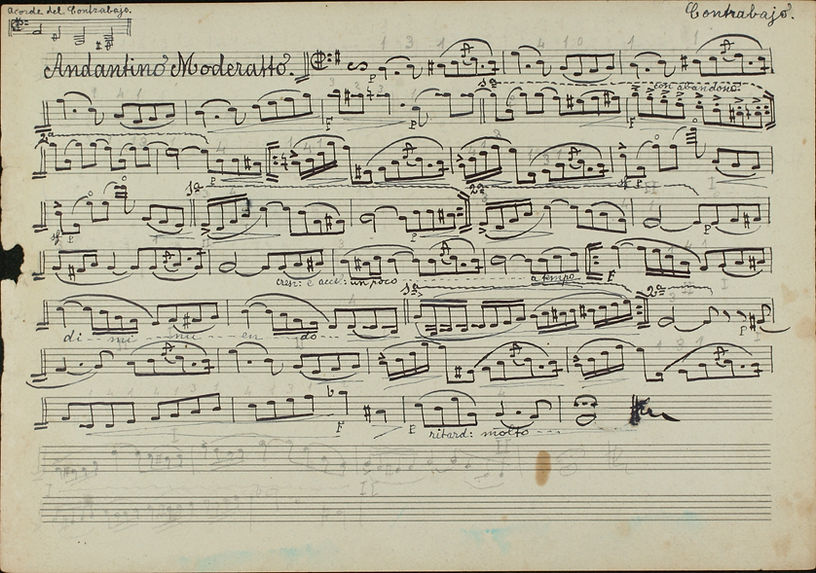 acorde del Contrabajo.
Contrabajo.
Andantino Moderatto.
P
1ª
con abandono
F P F
2ª
P
sf P
1ª 2ª
sf P P
cresc: e accel: un poco a tempo F
1ª 2ª
di - mi - nu - en - do P
F P ritard: molto